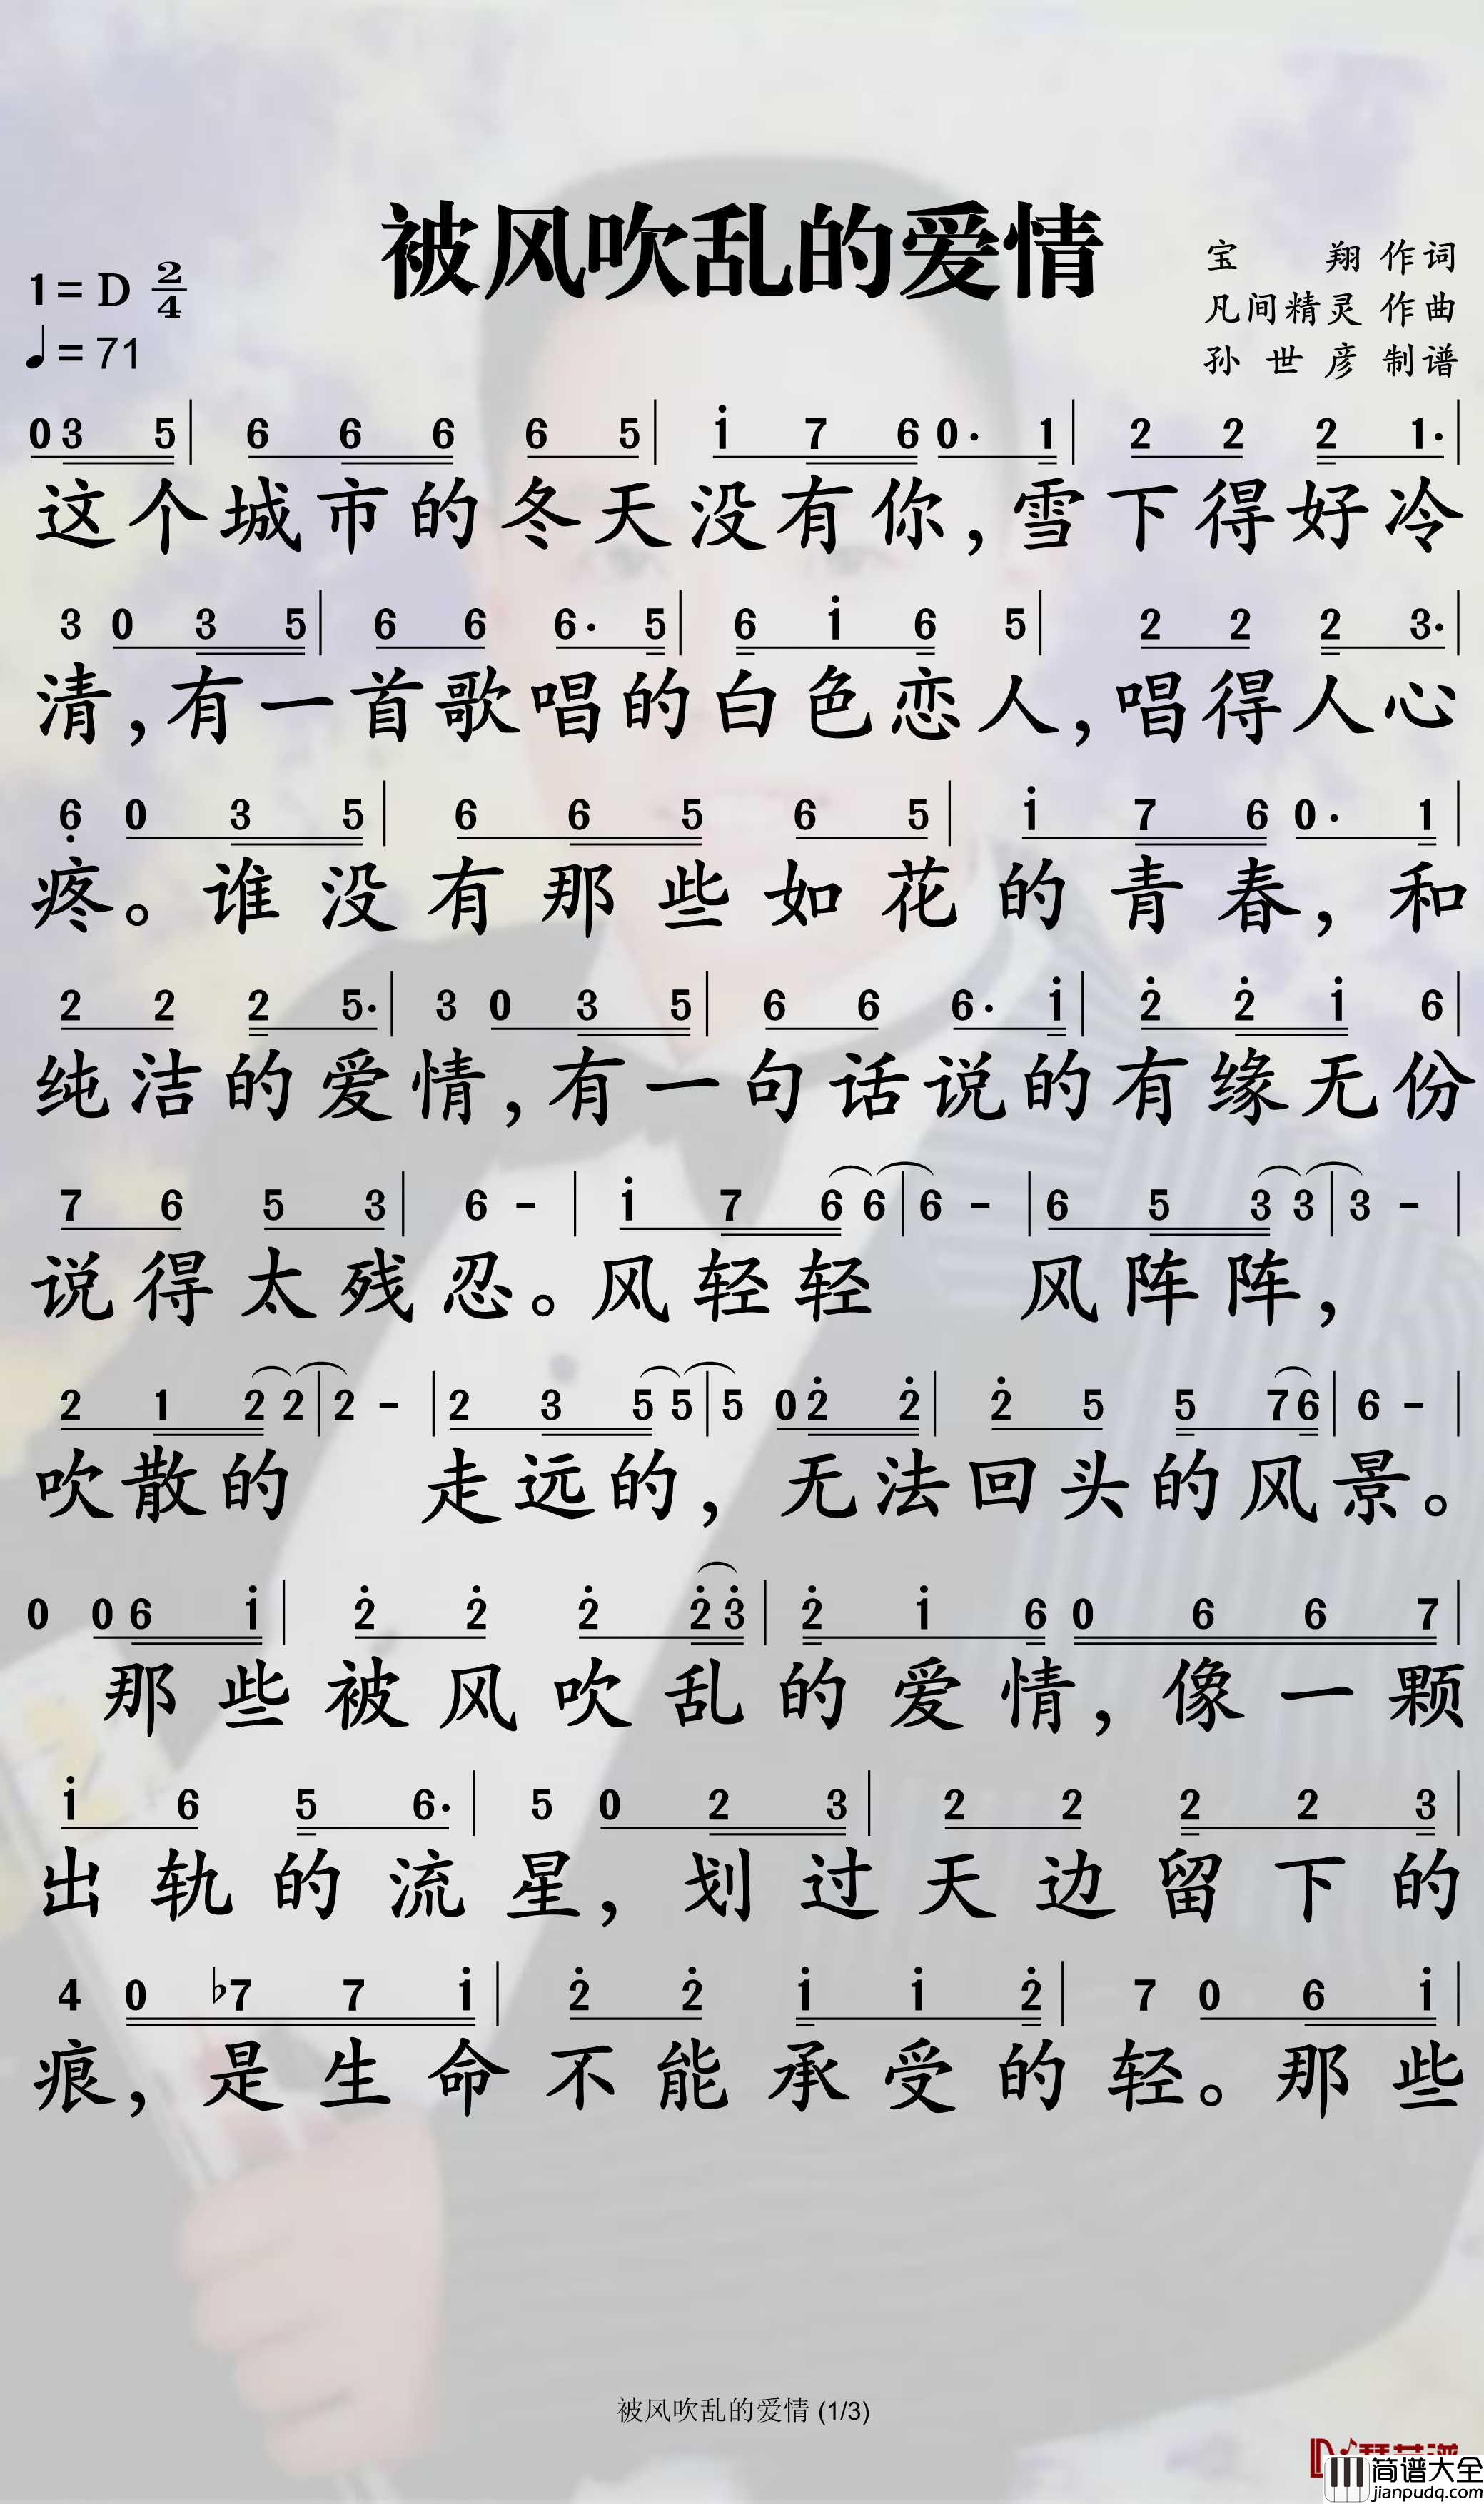 被风吹乱的爱情
1=D 2/4
♩=71
宝 翔 作词
凡间精灵 作曲
孙世彦 制谱
0 3 5 | 6 6 6 6 5 | i 7 6 0· 1 | 2 2 2 1· |
这个城市的冬天没有你，雪下得好冷
3 0 3 5 | 6 6 6· 5 | 6 i 6 5 | 2 2 2 3· |
清，有一首歌唱的白色恋人，唱得人心
6̣ 0 3 5 | 6 6 5 6 5 | i 7 6 0· 1 |
疼。谁没有那些如花的青春，和
2 2 2 5· | 3 0 3 5 | 6 6 6· i | 2̇ 2̇ i 6 |
纯洁的爱情，有一句话说的有缘无份
7 6 5 3 | 6 - | i 7 6 6 | 6 - | 6 5 3 3 | 3 - |
说得太残忍。风轻轻 风阵阵，
2 1 2 2 | 2 - | 2 3 5 5 | 5 0 2̇ 2̇ | 2̇ 5 5 7 6 | 6 - |
吹散的 走远的，无法回头的风景。
0 0 6 i | 2̇ 2̇ 2̇ 2̇ 3̇ | 2̇ i 6 0 6 6 7 |
那些被风吹乱的爱情，像一颗
i 6 5 6· | 5 0 2 3 | 2 2 2 2 3 |
出轨的流星，划过天边留下的
4 0 ♭7 7 i | 2̇ 2̇ i i 2̇ | 7 0 6 i |
痕，是生命不能承受的轻。那些
被风吹乱的爱情 (1/3)
简谱大全
jianpudq.com